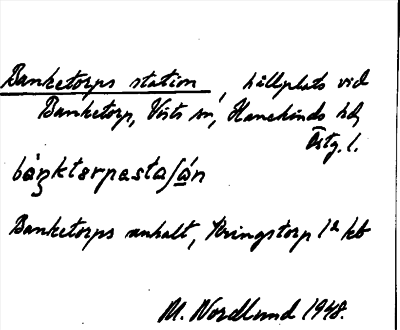 Banketorps station, hållplats vid
Banketorp, Vists sn, Hanekinds hd,
Östg. l.
Banketorps anhalt, Kringstorp 1² kb
M. Nordlund 1948.